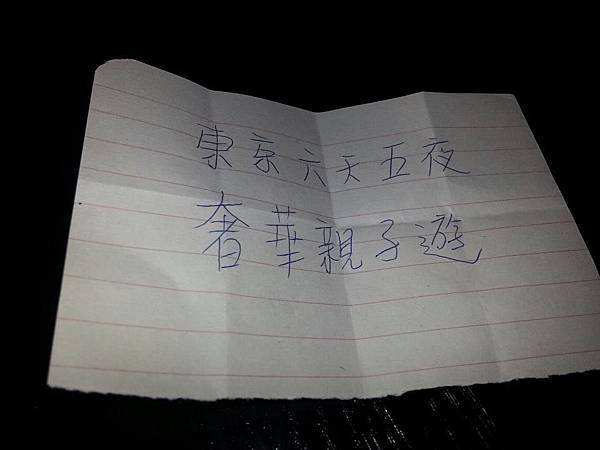 東京六天五夜
奢華親子遊